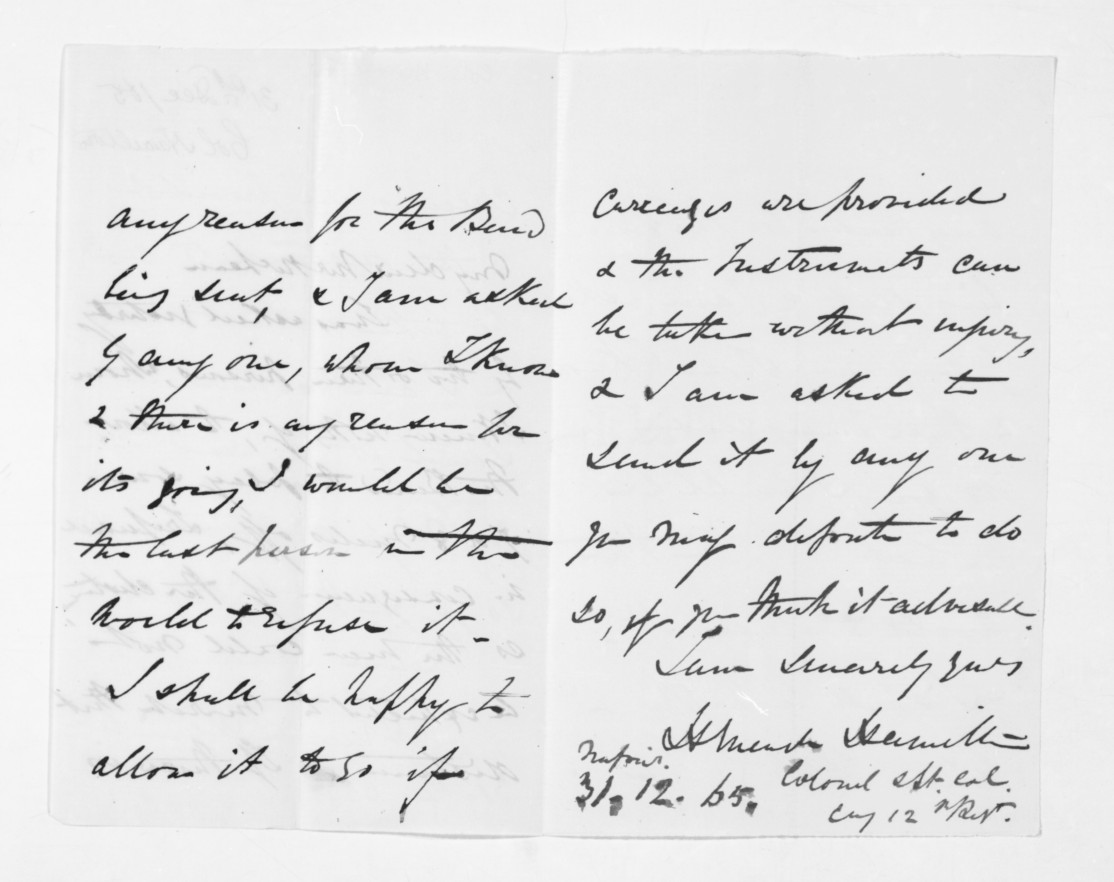 any reason for the Band
being sent, & I am asked
by any one, whom I know
& there is any reason for
its going, I would be
the last person in the
world to refuse it -
I shall be happy to
allow it to go if
Carriages are provided
& the Instruments can
be taken without injury,
& I am asked to
send it by any one
you may depute to do
so, if you think it advisable.
I am Sincerely yours
Hamilton
Napier.
31.12.65.
Colonel & Lt. Col.
Cmg 12th Regt.